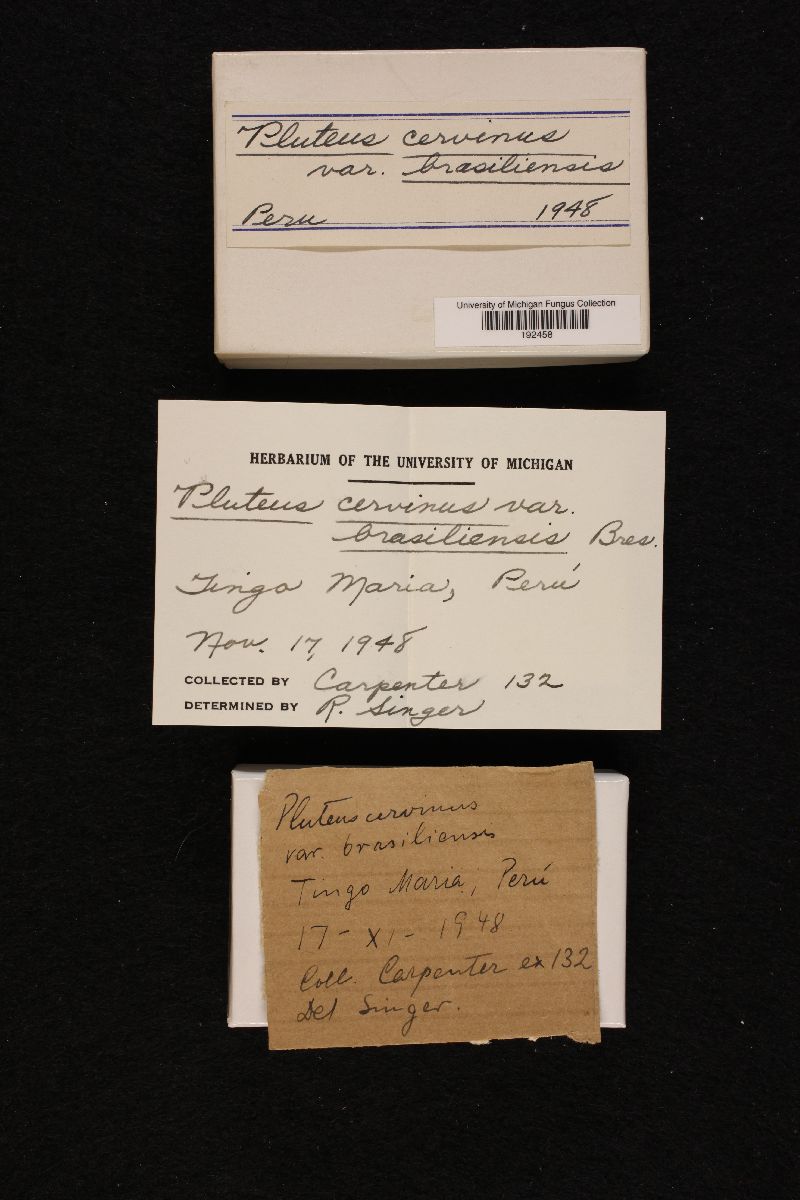 Pluteus cervinus
var. brasiliensis
Peru 1948
University of Michigan Fungus Collection
192458
HERBARIUM OF THE UNIVERSITY OF MICHIGAN
Pluteus cervinus var.
brasiliensis Bres.
Tingo Maria, Perú
Nov. 17, 1948
COLLECTED BY Carpenter 132
DETERMINED BY R. Singer
Pluteus cervinus
var. brasiliensis
Tingo Maria, Perú
17-XI-1948
Coll. Carpenter ex 132
Det Singer.